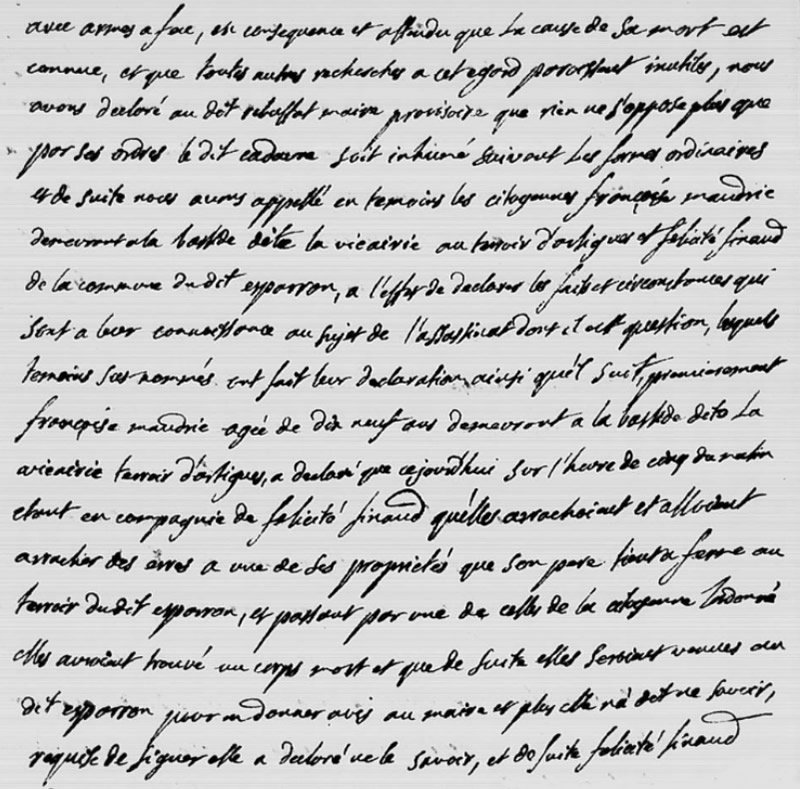 avec armes a feu, en consequence et attendu que la cause de sa mort est
connue, et que toutes autres recherches a cet egard paroissent inutiles, nous
avons declaré au dit rebuffat maire provisoire que rien ne s'oppose plus que
par ses ordres le dit cadavre soit inhumé suivant les formes ordinaires
et de suite nous avons appellé en temoins les citoyennes françoise maudrie
demeurant a la bastide dite la vicairie au terroir d'artigues et felicité sinaud
de la commune du dit esparron, a l'effet de declarer les faits et circonstances qui
sont a leur connoissance au sujet de l'assassinat dont il est question, lesquels
temoins sus nommés ont fait leur declaration ainsi qu'il suit, premierement
françoise maudrie agée de dix neuf ans demeurant a la bastide dite la
vicairie terroir d'artigues, a declaré que cejourd'hui sur l'heure de cinq du matin
etant en compagnie de felicité sinaud qu'elles arrachoient et alloient
arracher des erres a une de ses proprietés que son pere tient a ferme au
terroir du dit esparron, et passant par une de celles de la citoyenne
elles auroient trouvé un corps mort et que de suite elles seroient venues au
dit esparron pour en donner avis au maire et plus elle n'a dit ne savoir,
requise de signer elle a declaré ne le savoir, et de suite felicité sinaud